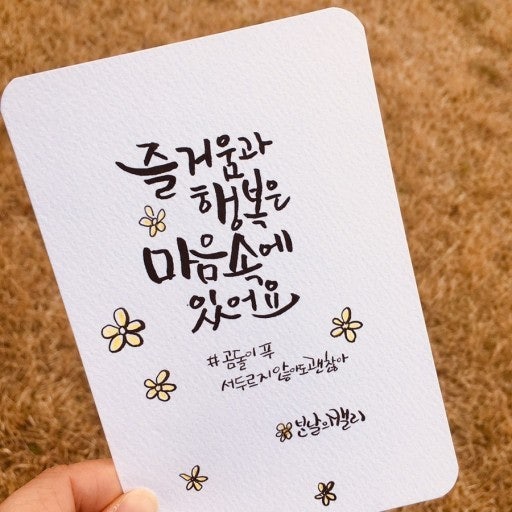 즐거움과
행복은
마음속에
있어요
#곰돌이 푸
서두르지 않아도 괜찮아
봄날의캘리